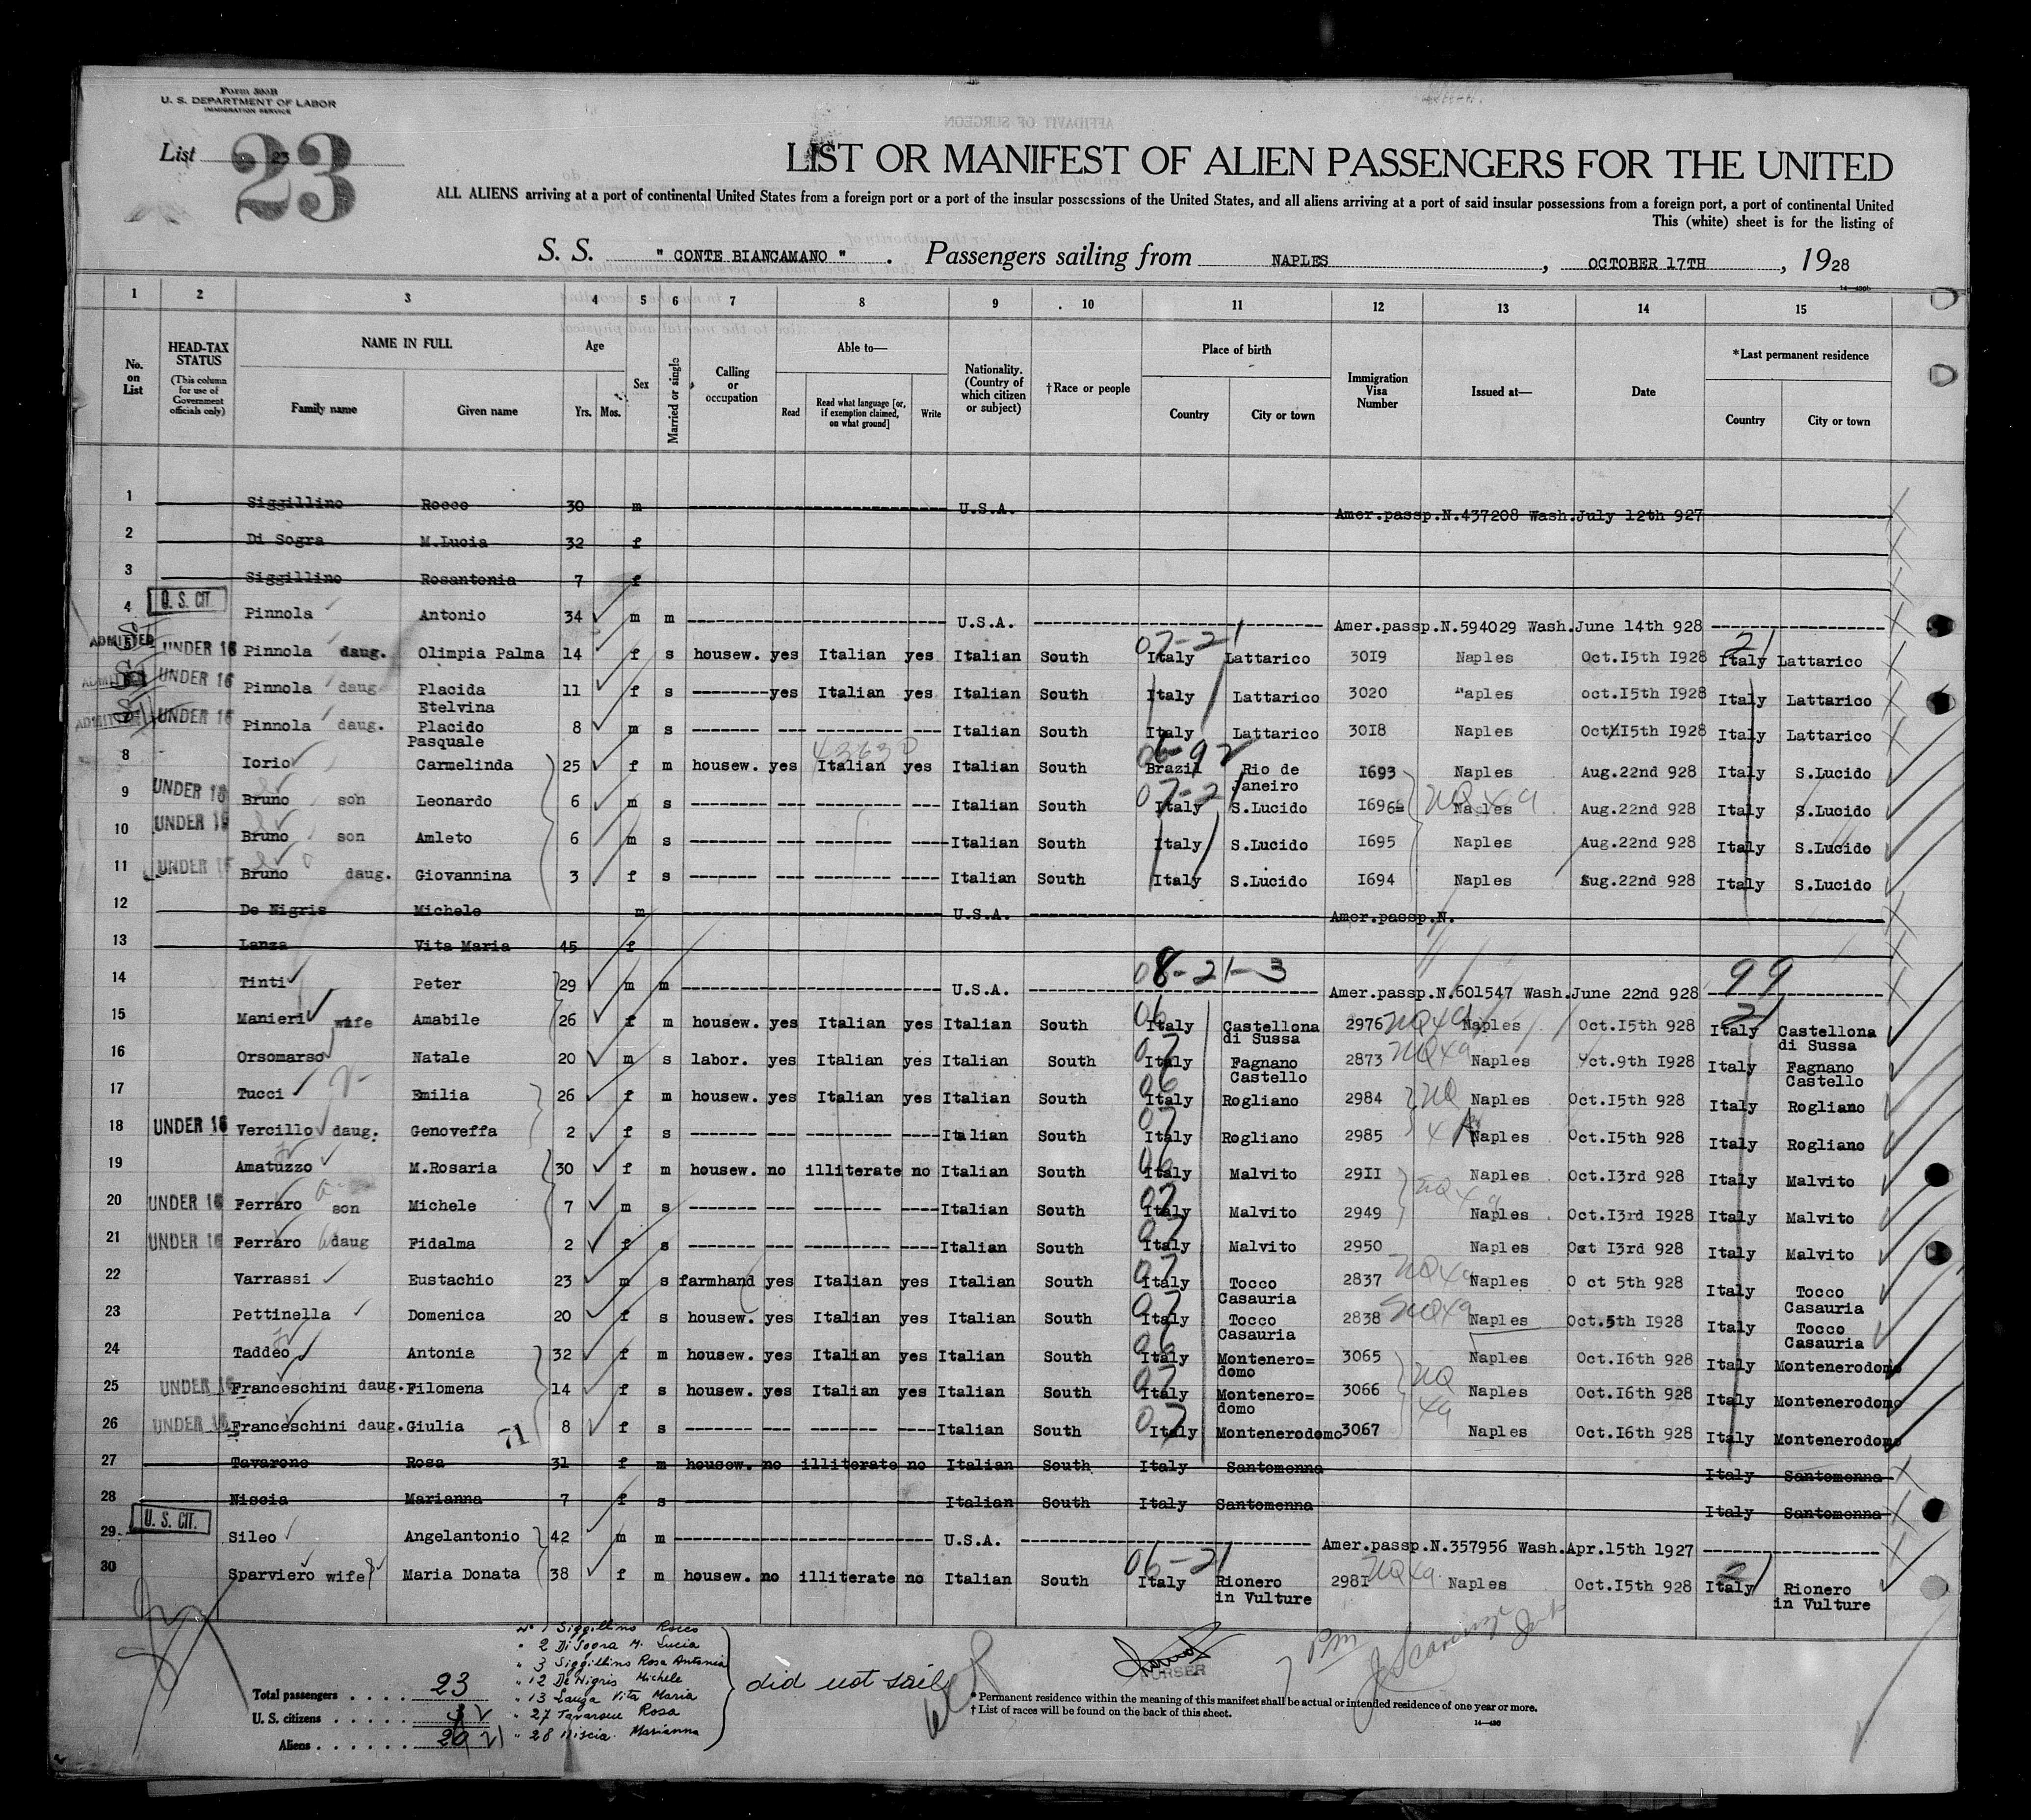 Form 500B
U. S. DEPARTMENT OF LABOR
IMMIGRATION SERVICE
List 23
23
AFFIDAVIT OF SURGEON
LIST OR MANIFEST OF ALIEN PASSENGERS FOR THE UNITED
ALL ALIENS arriving at a port of continental United States from a foreign port or a port of the insular possessions of the United States, and all aliens arriving at a port of said insular possessions from a foreign port, a port of continental United
This (white) sheet is for the listing of
S. S. " CONTE BIANCAMANO " . Passengers sailing from NAPLES , OCTOBER 17TH , 1928
1 2 3 4 5 6 7 8 9 10 11 12 13 14 15
No. on List HEAD-TAX STATUS (This column for use of Government officials only) NAME IN FULL Family name Given name Age Yrs. Mos. Sex Married or single Calling or occupation Able to— Read Read what language [or, if exemption claimed, on what ground] Write Nationality. (Country of which citizen or subject) †Race or people Place of birth Country City or town Immigration Visa Number Issued at— Date *Last permanent residence Country City or town
1 Siggillino Rocco 30 m U.S.A. Amer.passp.N.437208 Wash.July 12th 927
2 Di Sogra M.Lucia 32 f
3 Siggillino Rosantonia 7 f
4 U. S. CIT. Pinnola Antonio 34 m m U.S.A. Amer.passp.N.594029 Wash.June 14th 928
07-21 21
ADMITTED 5 UNDER 16 Pinnola daug. Olimpia Palma 14 f s housew. yes Italian yes Italian South Italy Lattarico 3019 Naples Oct.15th 1928 Italy Lattarico
ADMITTED UNDER 16 Pinnola daug Placida Etelvina 11 f s -------- yes Italian yes Italian South Italy Lattarico 3020 Naples oct.15th 1928 Italy Lattarico
ADMITTED UNDER 16 Pinnola daug. Placido Pasquale 8 m s ------- --- --------- --- Italian South Italy Lattarico 3018 Naples Oct.15th 1928 Italy Lattarico
06-92
8 Iorio Carmelinda 25 f m housew. yes Italian yes Italian South Brazil Rio de Janeiro 1693 Naples Aug.22nd 928 Italy S.Lucido
07-21
9 UNDER 16 Bruno son Leonardo 6 m s -------- --- --------- --- Italian South Italy S.Lucido 1696 Naples Aug.22nd 928 Italy S.Lucido
10 UNDER 16 Bruno son Amleto 6 m s -------- --- -------- ---- Italian South Italy S.Lucido 1695 Naples Aug.22nd 928 Italy S.Lucido
11 UNDER 16 Bruno daug. Giovannina 3 f s ------- --- -------- ---- Italian South Italy S.Lucido 1694 Naples Aug.22nd 928 Italy S.Lucido
12 De Nigris Michele m U.S.A. Amer.passp.N.
13 Lanza Vita Maria 45 f
08-21-3 99
14 Tinti Peter 29 m m U.S.A. Amer.passp.N.601547 Wash.June 22nd 928
15 Manieri wife Amabile 26 f m housew. yes Italian yes Italian South Italy Castellona di Sussa 2976 Naples Oct.15th 928 Italy Castellona di Sussa
16 Orsomarso Natale 20 m s labor. yes Italian yes Italian South Italy Fagnano Castello 2873 Naples Oct.9th 1928 Italy Fagnano Castello
17 Tucci Emilia 26 f m housew. yes Italian yes Italian South Italy Rogliano 2984 Naples Oct.15th 928 Italy Rogliano
18 UNDER 16 Vercillo daug. Genoveffa 2 f s ------- --- --------- --- Italian South Italy Rogliano 2985 Naples Oct.15th 928 Italy Rogliano
19 Amatuzzo M.Rosaria 30 f m housew. no illiterate no Italian South Italy Malvito 2911 Naples Oct.13rd 928 Italy Malvito
20 UNDER 16 Ferraro son Michele 7 m s -------- --- ------- ---- Italian South Italy Malvito 2949 Naples Oct.13rd 1928 Italy Malvito
21 UNDER 16 Ferraro daug Fidalma 2 f s ------- --- --------- ---- Italian South Italy Malvito 2950 Naples Oct 13rd 928 Italy Malvito
22 Varrassi Eustachio 23 m s farmhand yes Italian yes Italian South Italy Tocco Casauria 2837 Naples O ct 5th 928 Italy Tocco Casauria
23 Pettinella Domenica 20 f s housew. yes Italian yes Italian South Italy Tocco Casauria 2838 Naples Oct.5th 1928 Italy Tocco Casauria
24 Taddeo Antonia 32 f m housew. yes Italian yes Italian South Italy Montenero= domo 3065 Naples Oct.16th 928 Italy Montenerodomo
25 UNDER 16 Franceschini daug. Filomena 14 f s housew. yes Italian yes Italian South Italy Montenero= domo 3066 Naples Oct.16th 928 Italy Montenerodomo
26 UNDER 16 Franceschini daug. Giulia 71 8 f s ------- --- ------- ---- Italian South Italy Montenerodomo 3067 Naples Oct.16th 928 Italy Montenerodomo
27 Tavarone Rosa 31 f m housew. no illiterate no Italian South Italy Santomenna Italy Santomenna
28 Niscia Marianna 7 f s Italian South Italy Santomenna Italy Santomenna
29 U. S. CIT. Sileo Angelantonio 42 m m U.S.A. Amer.passp.N.357956 Wash.Apr.15th 1927
06-21
30 Sparviero wife Maria Donata 38 f m housew. no illiterate no Italian South Italy Rionero in Vulture 2981 Naples Oct.15th 928 Italy Rionero in Vulture
No 1 Siggillino Rocco
" 2 Di Sogra M. Lucia
" 3 Siggillino Rosa Antonia
" 12 De Nigris Michele
" 13 Lanza Vita Maria
" 27 Tavarone Rosa
" 28 Niscia Marianna
did not sail
PURSER
Total passengers . . . . 23
U. S. citizens . . . . . 3
Aliens . . . . . . 20
* Permanent residence within the meaning of this manifest shall be actual or intended residence of one year or more.
† List of races will be found on the back of this sheet.
14—430